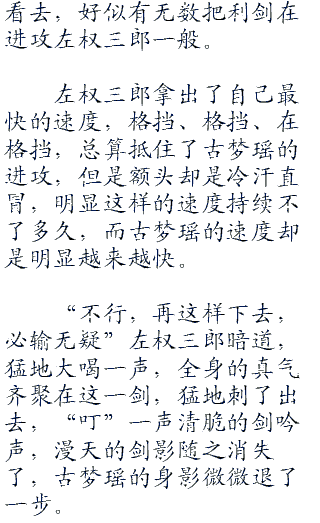 看去，好似有无数把利剑在
进攻左权三郎一般。
左权三郎拿出了自己最
快的速度，格挡、格挡、在
格挡，总算抵住了古梦瑶的
进攻，但是额头却是冷汗直
冒，明显这样的速度持续不
了多久，而古梦瑶的速度却
是明显越来越快。
“不行，再这样下去，
必输无疑”左权三郎暗道，
猛地大喝一声，全身的真气
齐聚在这一剑，猛地刺了出
去，“叮”一声清脆的剑吟
声，漫天的剑影随之消失
了，古梦瑶的身影微微退了
一步。